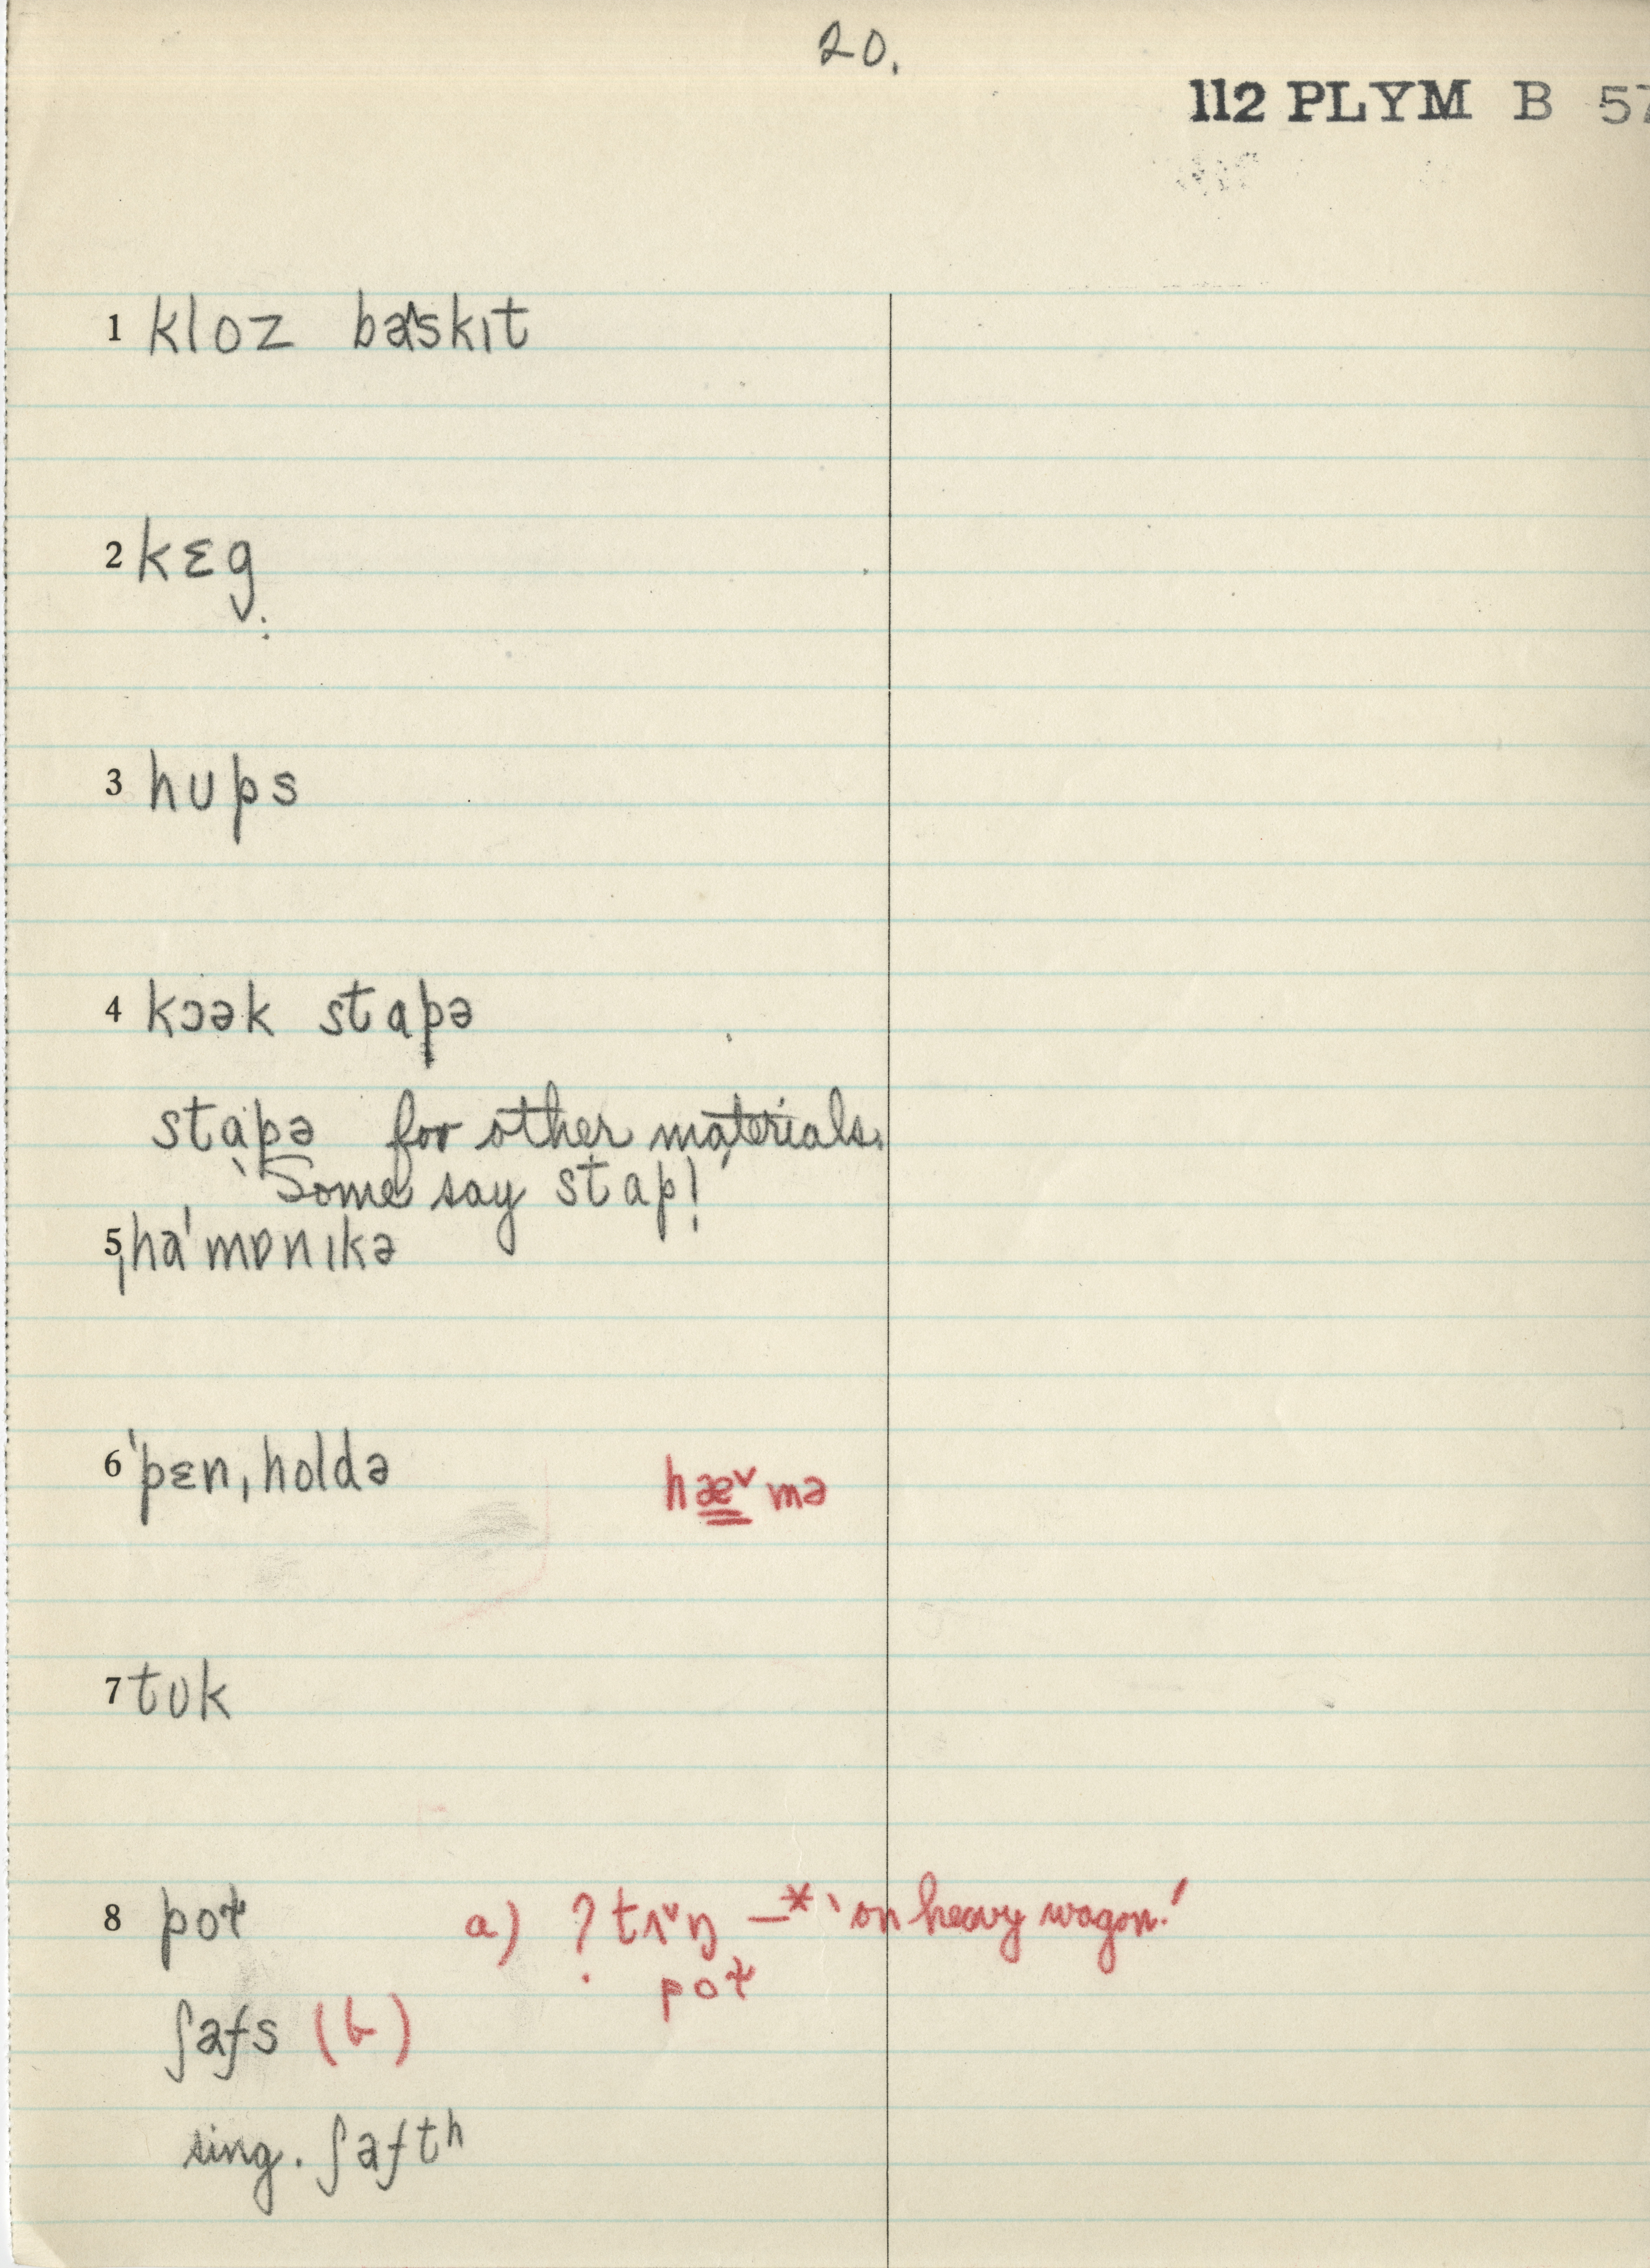 20.
112 PLYM B 57
1 kloz ba^skɪt
2 kɛg̣
3 hups
4 kɔək stapə
stapə for other materials.
'Some say stap!'
5 ˌha'mɒnɪkə
6 'pɛn,holdə hæ̳ˇmə
7 tʊk
8 poɫ a) ? tʌˇŋ —* 'on heavy wagon.'
poɫ
ʃafs (b)
sing. ʃaftʰ